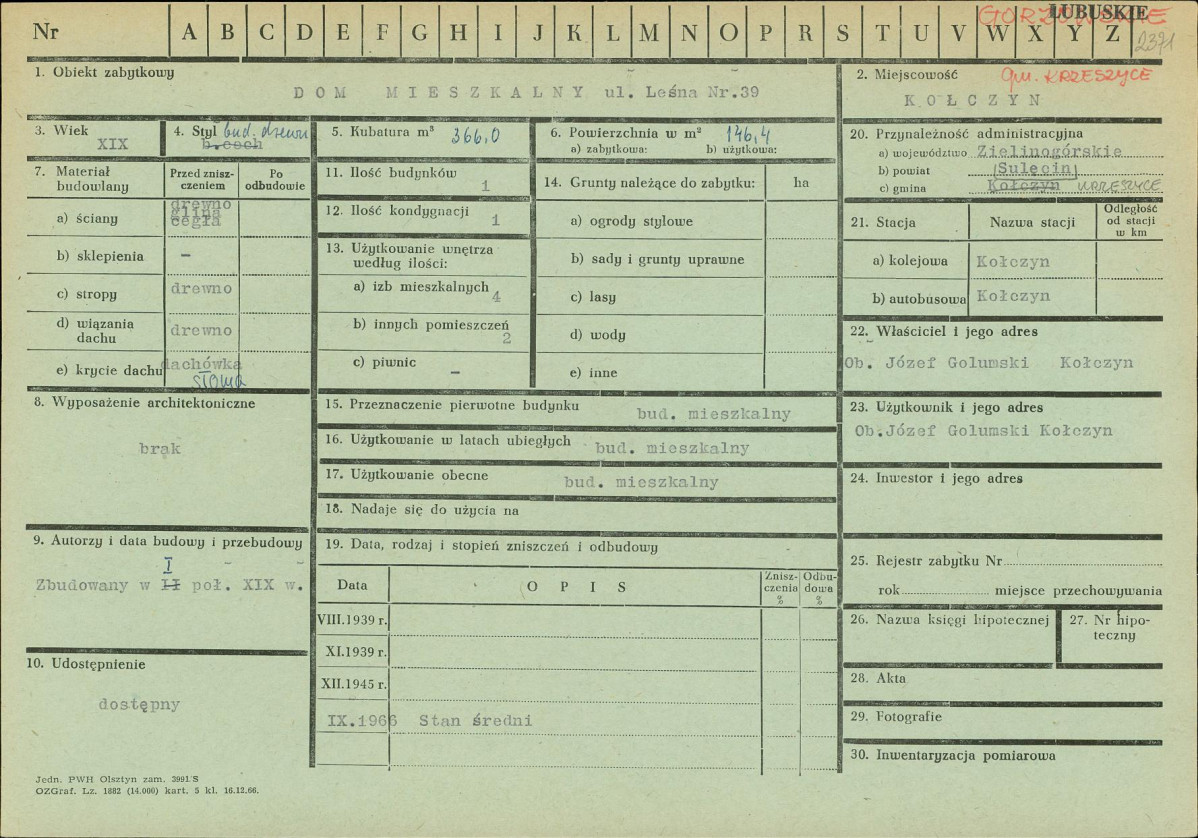 GORZOWSKIE LUBUSKIE
Nr A B C D E F G H I J K L M N O P R S T U V W X Y Z 2371
1. Obiekt zabytkowy
DOM MIESZKALNY ul. Leśna Nr.39
2. Miejscowość gm. KRZESZYCE
KOŁCZYN
3. Wiek
XIX
4. Styl bud. drewn
b.cech
5. Kubatura m³ 366,0
6. Powierzchnia w m² 146,4
a) zabytkowa: b) użytkowa:
7. Materiał budowlany
Przed zniszczeniem
Po odbudowie
a) ściany drewno
glina
cegła
b) sklepienia –
c) stropy drewno
d) wiązania dachu drewno
e) krycie dachu dachówka
słoma
8. Wyposażenie architektoniczne
brak
9. Autorzy i data budowy i przebudowy
I
Zbudowany w II poł. XIX w.
10. Udostępnienie
dostępny
11. Ilość budynków
1
12. Ilość kondygnacji
1
13. Użytkowanie wnętrza
według ilości:
a) izb mieszkalnych 4
b) innych pomieszczeń
2
c) piwnic –
14. Grunty należące do zabytku: ha
a) ogrody stylowe
b) sady i grunty uprawne
c) lasy
d) wody
e) inne
15. Przeznaczenie pierwotne budynku bud. mieszkalny
16. Użytkowanie w latach ubiegłych bud. mieszkalny
17. Użytkowanie obecne bud. mieszkalny
18. Nadaje się do użycia na
19. Data, rodzaj i stopień zniszczeń i odbudowy
Data OPIS Zniszczenia % Odbudowa %
VIII.1939 r.
XI.1939 r.
XII.1945 r.
IX.1966 Stan średni
20. Przynależność administracyjna
a) województwo Zielinogórskie
b) powiat Sulęcin
c) gmina Kołczyn KRZESZYCE
21. Stacja Nazwa stacji Odległość od stacji w km
a) kolejowa Kołczyn
b) autobusowa Kołczyn
22. Właściciel i jego adres
Ob. Józef Golumski Kołczyn
23. Użytkownik i jego adres
Ob.Józef Golumski Kołczyn
24. Inwestor i jego adres
25. Rejestr zabytku Nr
rok miejsce przechowywania
26. Nazwa księgi hipotecznej
27. Nr hipoteczny
28. Akta
29. Fotografie
30. Inwentaryzacja pomiarowa
Jedn. PWH Olsztyn zam. 3991/S
OZGraf. Lz. 1882 (14.000) kart. 5 kl. 16.12.66.